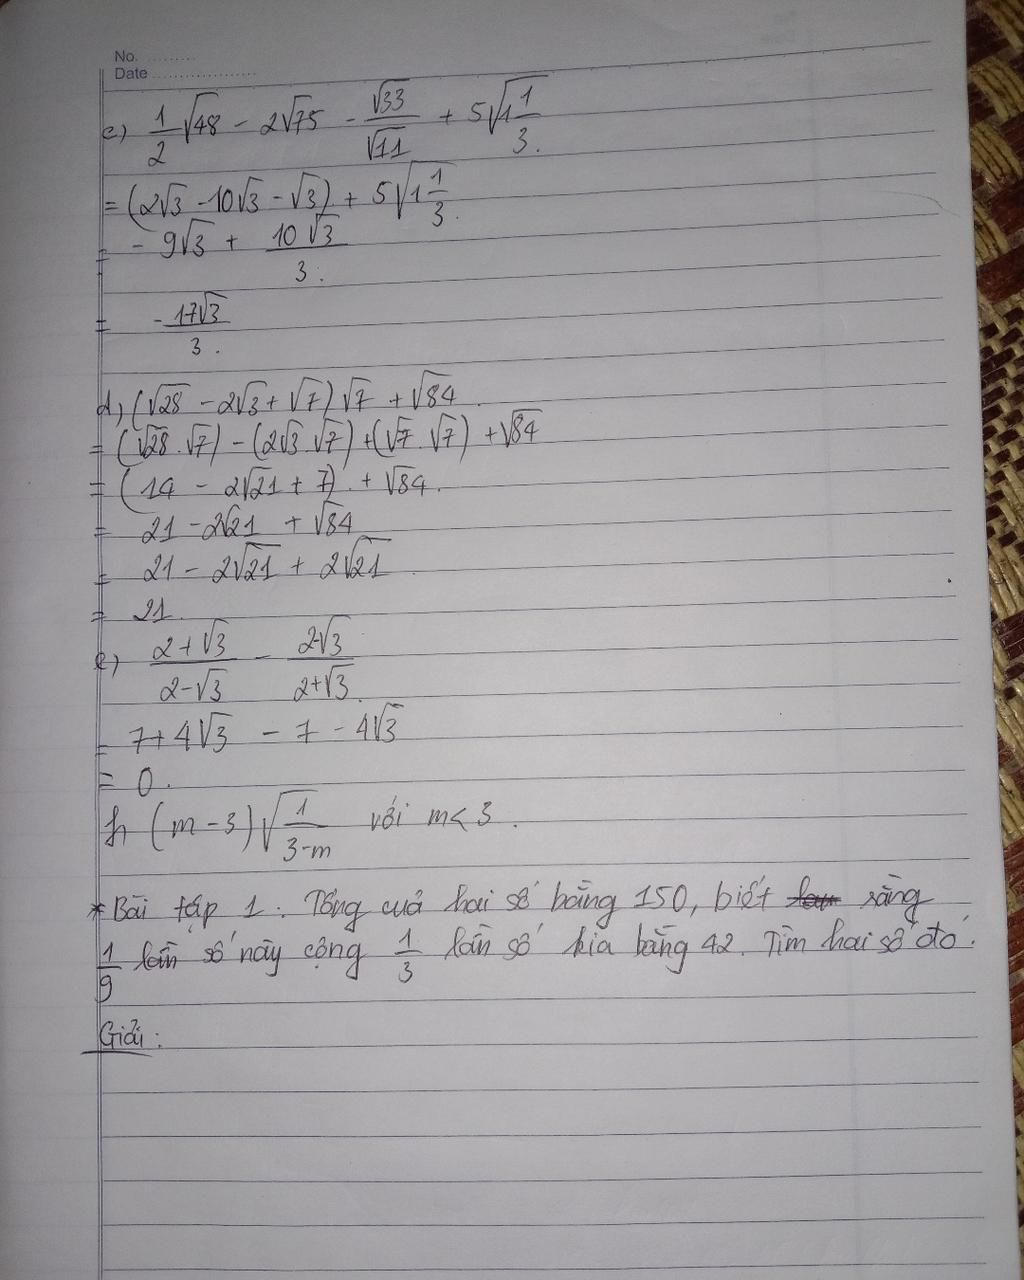 No. ..........
Date ..................
c) 1/2 √48 - 2√75 - √33/√11 + 5√1 1/3.
= (2√3 - 10√3 - √3) + 5√1 1/3.
= - 9√3 + 10√3/3.
= -17√3/3.
d, (√28 - 2√3 + √7) √7 + √84.
= (√28.√7) - (2√3.√7) + (√7.√7) + √84
= (14 - 2√21 + 7) + √84.
= 21 - 2√21 + √84
= 21 - 2√21 + 2√21
= 21.
e) 2+√3/2-√3 - 2-√3/2+√3.
= 7+4√3 - 7 - 4√3
= 0.
f, (m-3)√1/3-m với m< 3.
* Bài tập 1: Tổng của hai số bằng 150, biết rằng
1/9 lần số này cộng 1/3 lần số kia bằng 42. Tìm hai số đó.
Giải: